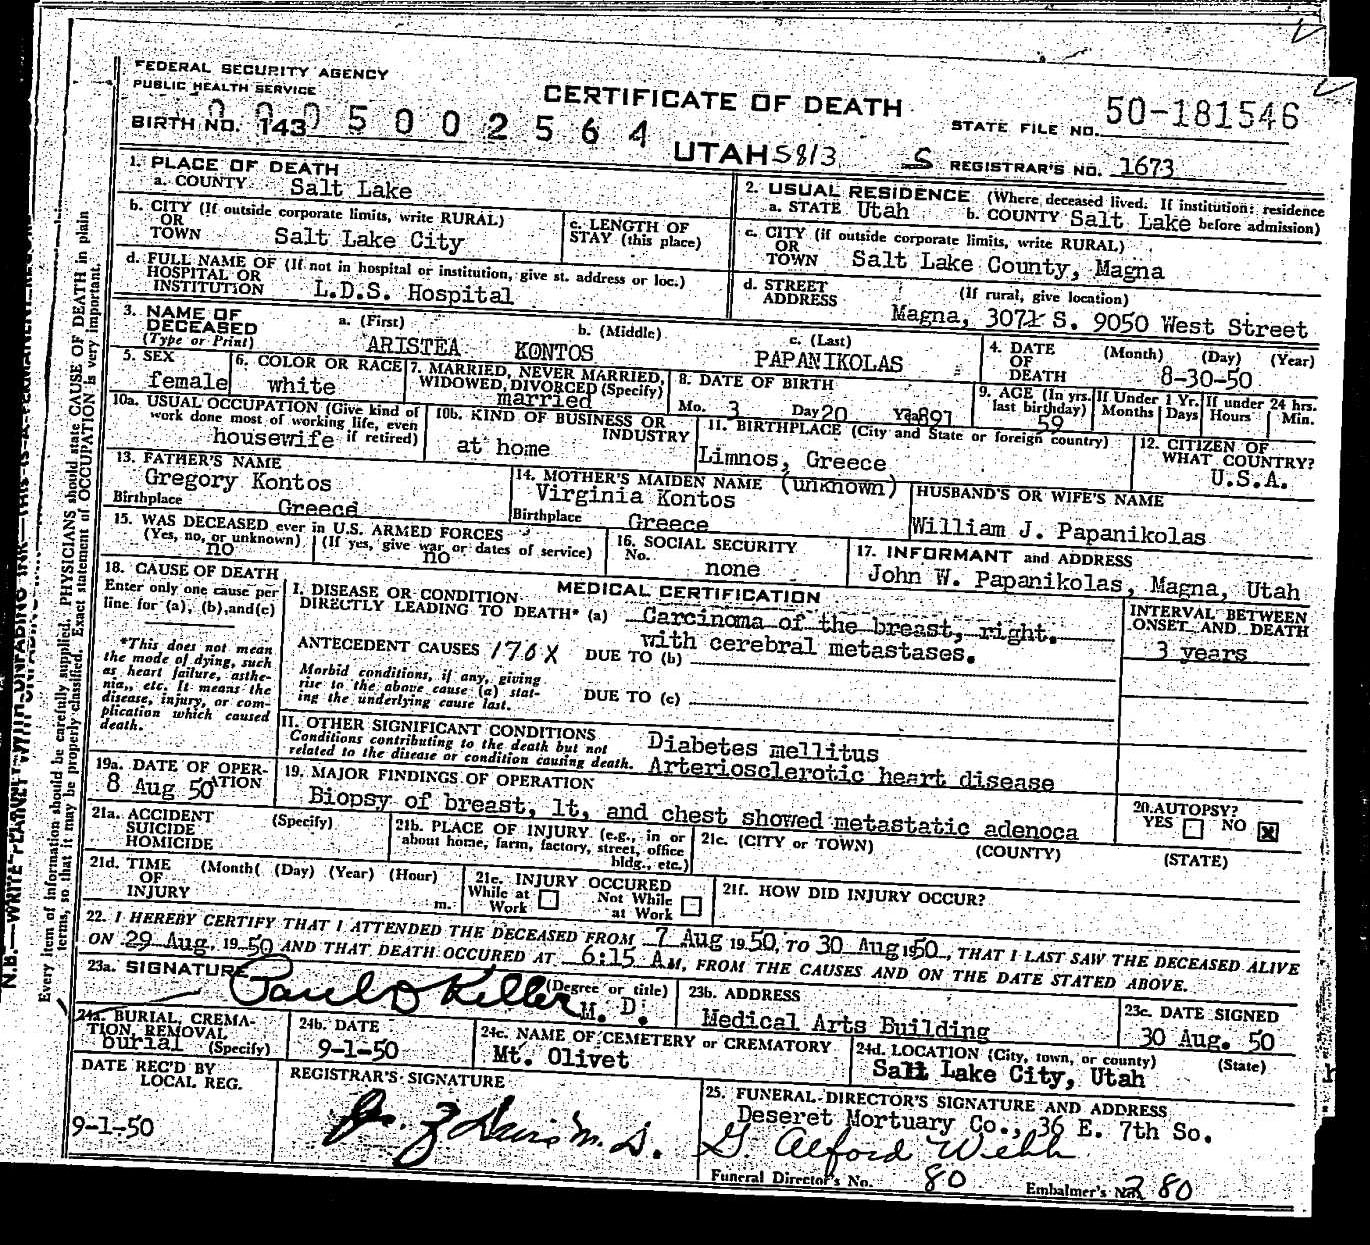 FEDERAL SECURITY AGENCY
PUBLIC HEALTH SERVICE
CERTIFICATE OF DEATH
STATE FILE NO. 50-181546
BIRTH NO. 143 0005002564
UTAH 5813 S REGISTRAR'S NO. 1673
1. PLACE OF DEATH
a. COUNTY Salt Lake
2. USUAL RESIDENCE (Where deceased lived. If institution: residence before admission)
a. STATE Utah b. COUNTY Salt Lake
b. CITY (If outside corporate limits, write RURAL)
OR
TOWN Salt Lake City
c. LENGTH OF
STAY (this place)
c. CITY (if outside corporate limits, write RURAL)
OR
TOWN Salt Lake County, Magna
d. FULL NAME OF (If not in hospital or institution, give st. address or loc.)
HOSPITAL OR
INSTITUTION L.D.S. Hospital
d. STREET (If rural, give location)
ADDRESS Magna, 3071 S. 9050 West Street
3. NAME OF
DECEASED
(Type or Print)
a. (First) b. (Middle) c. (Last)
ARISTEA KONTOS PAPANIKOLAS
4. DATE
OF
DEATH
(Month) (Day) (Year)
8-30-50
5. SEX
female
6. COLOR OR RACE
white
7. MARRIED, NEVER MARRIED,
WIDOWED, DIVORCED (Specify)
married
8. DATE OF BIRTH
Mo. 3 Day 20 Yr 1891
9. AGE (In yrs. last birthday) 59
If Under 1 Yr.
Months Days
If under 24 hrs.
Hours Min.
10a. USUAL OCCUPATION (Give kind of
work done most of working life, even
housewife if retired)
10b. KIND OF BUSINESS OR
INDUSTRY
at home
11. BIRTHPLACE (City and State or foreign country)
Limnos, Greece
12. CITIZEN OF
WHAT COUNTRY?
U.S.A.
13. FATHER'S NAME
Gregory Kontos
Birthplace Greece
14. MOTHER'S MAIDEN NAME (unknown)
Virginia Kontos
Birthplace Greece
HUSBAND'S OR WIFE'S NAME
William J. Papanikolas
15. WAS DECEASED ever in U.S. ARMED FORCES
(Yes, no, or unknown) (If yes, give war or dates of service)
no no
16. SOCIAL SECURITY
No. none
17. INFORMANT and ADDRESS
John W. Papanikolas, Magna, Utah
18. CAUSE OF DEATH
Enter only one cause per
line for (a), (b), and (c)
*This does not mean
the mode of dying, such
as heart failure, asthe-
nia, etc. It means the
disease, injury, or com-
plication which caused
death.
MEDICAL CERTIFICATION
I. DISEASE OR CONDITION
DIRECTLY LEADING TO DEATH* (a) Carcinoma of the breast, right.
with cerebral metastases.
ANTECEDENT CAUSES 170X DUE TO (b)
Morbid conditions, if any, giving
rise to the above cause (a) stat-
ing the underlying cause last.
DUE TO (c)
INTERVAL BETWEEN
ONSET AND DEATH
3 years
II. OTHER SIGNIFICANT CONDITIONS
Conditions contributing to the death but not
related to the disease or condition causing death.
Diabetes mellitus
Arteriosclerotic heart disease
19a. DATE OF OPER-
ATION
8 Aug 50
19. MAJOR FINDINGS OF OPERATION
Biopsy of breast, lt, and chest showed metastatic adenoca
20. AUTOPSY?
YES NO X
21a. ACCIDENT
SUICIDE
HOMICIDE
(Specify)
21b. PLACE OF INJURY (e.g., in or
about home, farm, factory, street, office
bldg., etc.)
21c. (CITY or TOWN) (COUNTY) (STATE)
21d. TIME
OF
INJURY
(Month( (Day) (Year) (Hour)
m.
21e. INJURY OCCURED
While at
Work
Not While
at Work
21f. HOW DID INJURY OCCUR?
22. I HEREBY CERTIFY THAT I ATTENDED THE DECEASED FROM 7 Aug 1950, TO 30 Aug 1950, THAT I LAST SAW THE DECEASED ALIVE
ON 29 Aug, 1950 AND THAT DEATH OCCURED AT 6:15 A.M, FROM THE CAUSES AND ON THE DATE STATED ABOVE.
23a. SIGNATURE (Degree or title)
Paul D Keller M. D.
23b. ADDRESS
Medical Arts Building
23c. DATE SIGNED
30 Aug. 50
24a. BURIAL, CREMA-
TION, REMOVAL
burial (Specify)
24b. DATE
9-1-50
24c. NAME OF CEMETERY or CREMATORY
Mt. Olivet
24d. LOCATION (City, town, or county) (State)
Salt Lake City, Utah
DATE REC'D BY
LOCAL REG.
9-1-50
REGISTRAR'S SIGNATURE
25. FUNERAL DIRECTOR'S SIGNATURE AND ADDRESS
Deseret Mortuary Co., 36 E. 7th So.
G. Alford Webb
Funeral Director's No. 80 Embalmer's No. 280
Every item of information should be carefully supplied. PHYSICIANS should state CAUSE OF DEATH in plain
terms, so that it may be properly classified. Exact statement of OCCUPATION is very important.